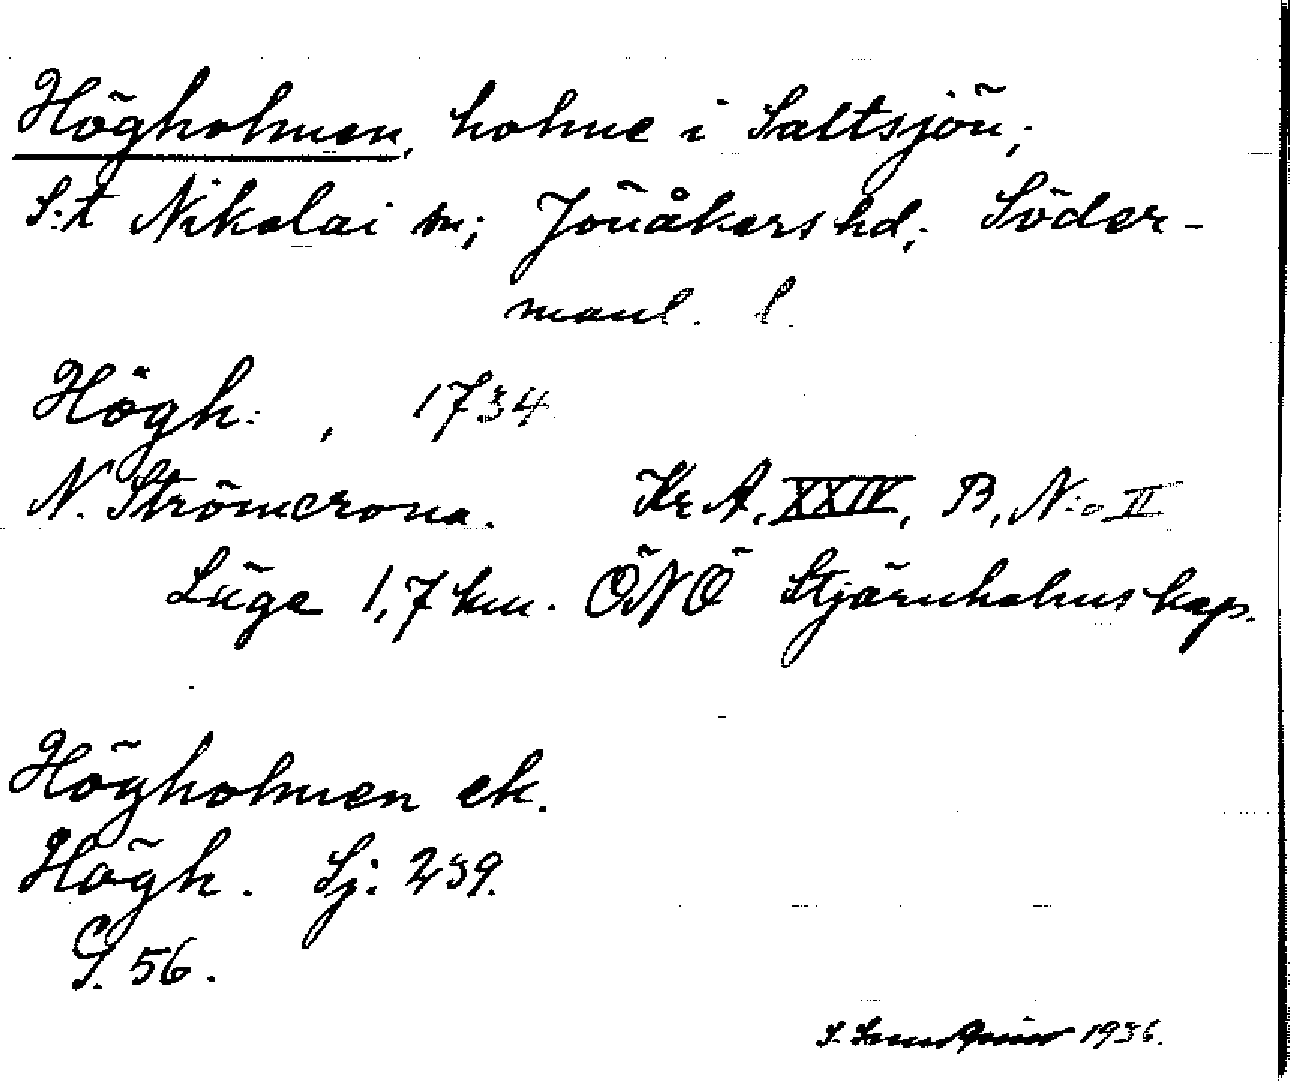 Högholmen, holme i Saltsjön;
S:t Nikolai sn; Jönåkers hd; Söder-
manl. l.
Högh: , 1734
N. Strömcrona. Kr A, XXIV, B, N:o II
Läge 1,7 km. ÖNÖ Stjärnholms kap.
Högholmen ek.
Högh. Sj. 239.
S. 56.
S. 1936.